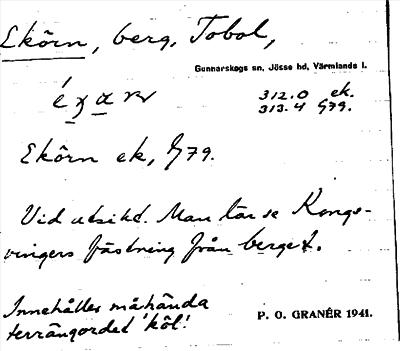 Ekörn, berg, Tobol,
Gunnarskogs sn, Jösse hd, Värmlands l.
312.0 ek.
313.4 G79.
Ekörn ek, G79.
Vid utsikt. Man lär se Kongs-
vingers fästning från berget.
Innehålles måhända
terrängordet 'köl'!
P. O. GRANÉR 1941.